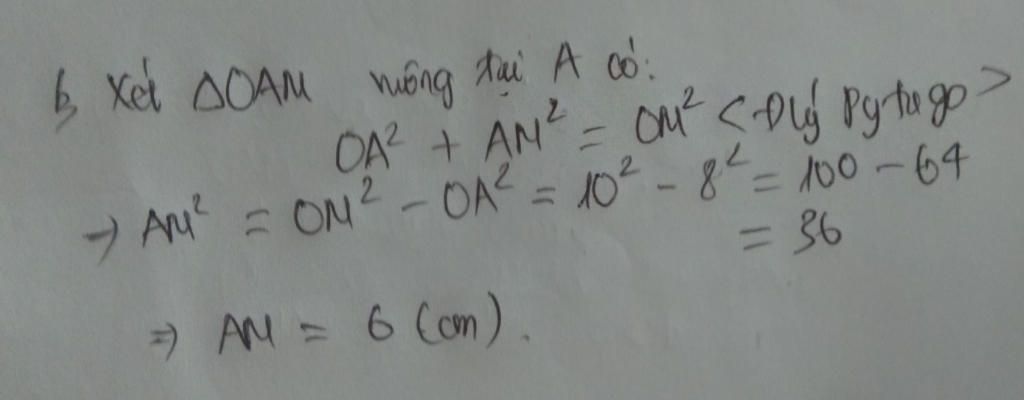 b, Xét ΔOAM vuông tại A có:
OA² + AM² = OM² < Đlý Pytago >
→ AM² = OM² - OA² = 10² - 8² = 100 - 64
= 36
⇒ AM = 6 (cm).